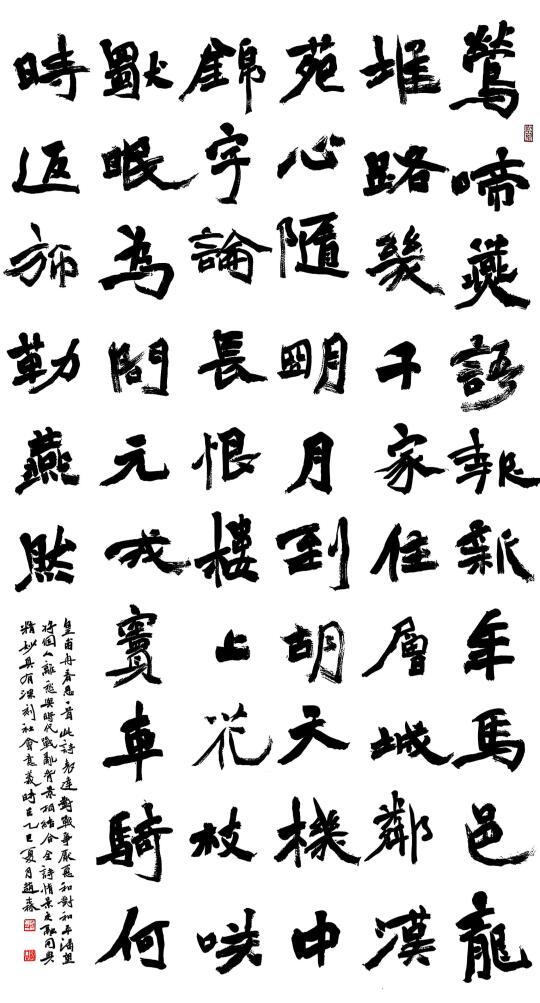 鶯啼燕語報新年馬邑龍
堆路幾千家住層城鄰漢
苑心隨明月到胡天機中
錦字論長恨樓上花枝咲
獨眠為問元戎竇車騎何
時返旆勒燕然
皇甫冉春思一首此詩表達對戰爭厭惡和對和平渴望
將個人離愁與時代戰亂背景相結合全詩情景交融用典
精妙具有深刻社會意義時在乙巳夏月趙森